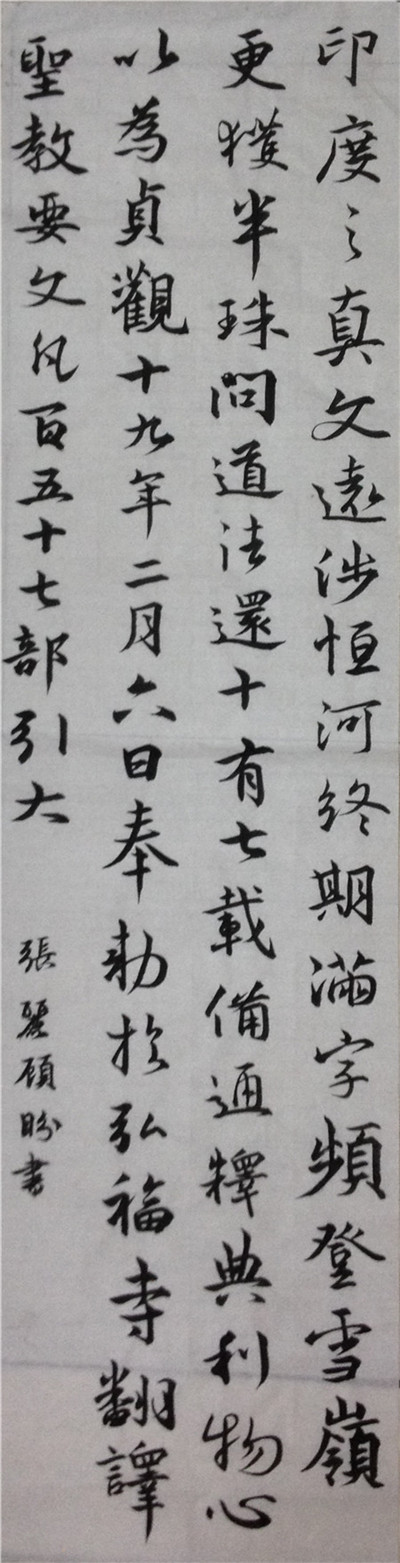 印度之真文遠涉恒河終期滿字頻登雪嶺
更獲半珠問道法還十有七載備通釋典利物心
以為貞觀十九年二月六日奉勅於弘福寺翻譯
聖教要文凡百五十七部引大
張麗頎盼書